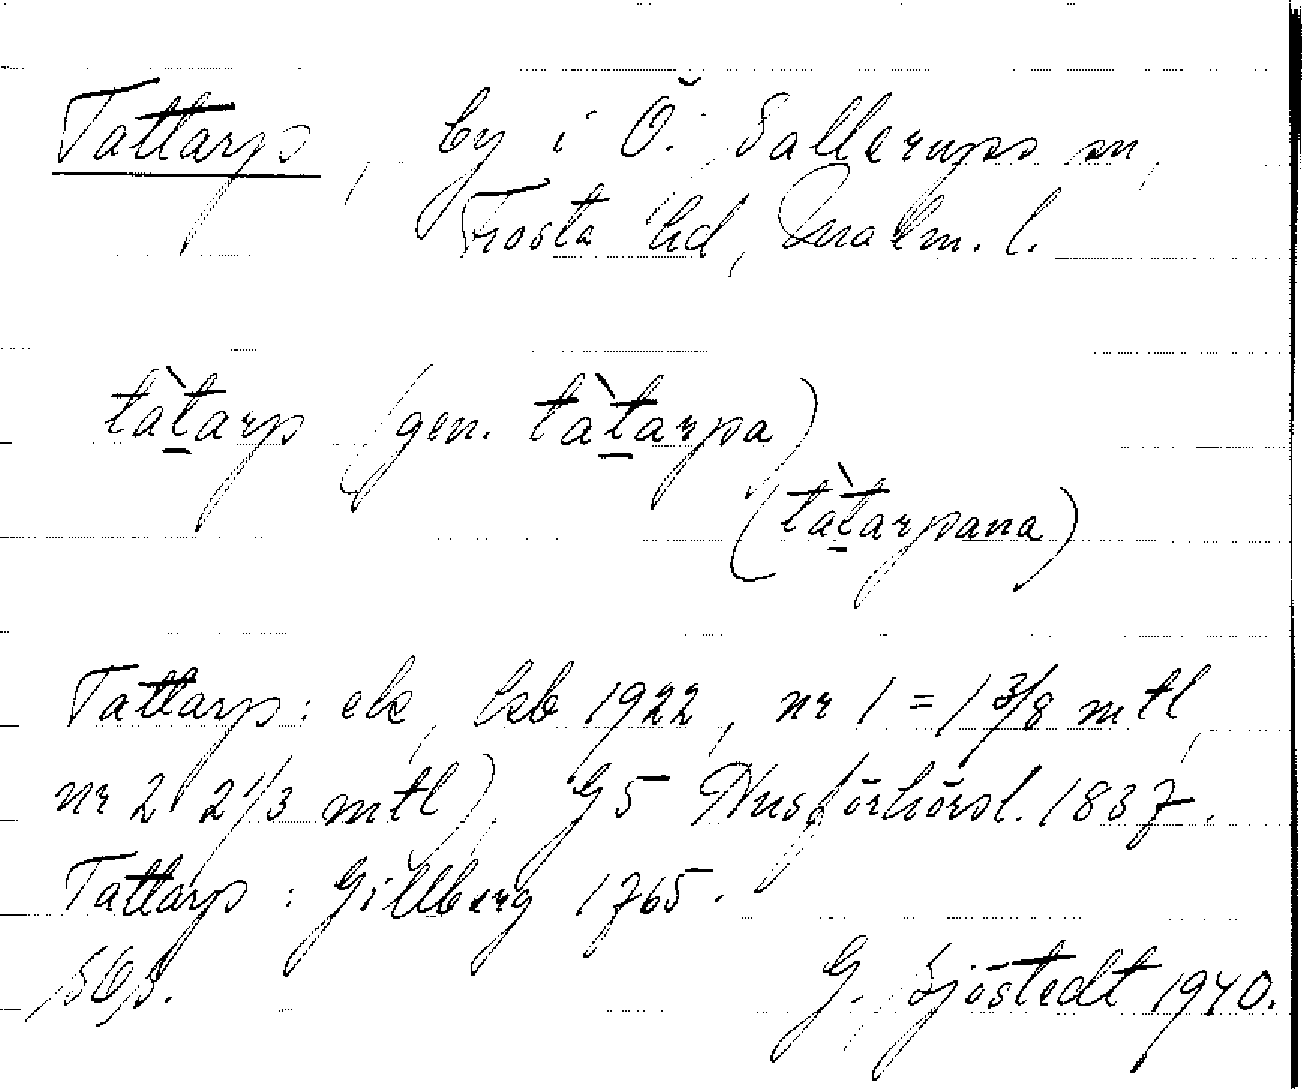 Tattarp, by i Ö. Sallerups sn,
Frosta hd, Malm. l.
tàtarp (gen. tàtarpa)
(tàtarpana)
Tattarp: ek, lsb 1922, nr 1 = 1 3/8 mtl,
nr 2 2 1/3 mtl), GS Husförhörsl. 1837.
Tattarp: Gillberg 1765.
SOS. G. Sjöstedt 1940.